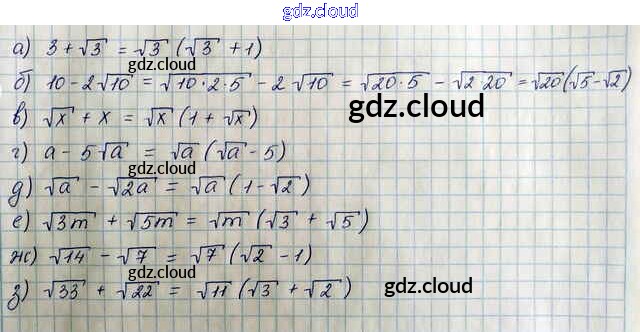 gdz.cloud
а) 3 + √3 = √3 (√3 + 1)
gdz.cloud
б) 10 - 2√10 = √10·2·5 - 2√10 = √20·5 - √2 20 = √20(√5 - √2)
gdz.cloud
в) √x + x = √x (1 + √x)
г) a - 5√a = √a (√a - 5)
gdz.cloud
д) √a - √2a = √a (1 - √2)
е) √3m + √5m = √m (√3 + √5)
ж) √14 - √7 = √7 (√2 - 1)
gdz.cloud
gdz.cloud
з) √33 + √22 = √11 (√3 + √2)